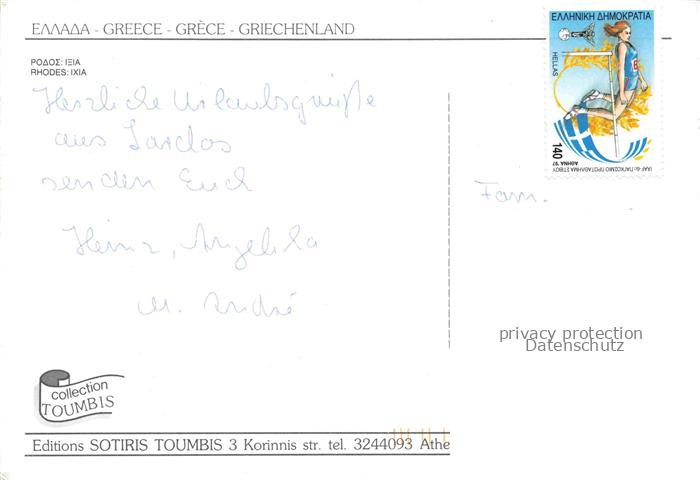 ΕΛΛΑΔΑ - GREECE - GRÈCE - GRIECHENLAND
ΡΟΔΟΣ: ΙΞΙΑ
RHODES: IXIA
Herzliche Urlaubsgrüße
aus Lardos
senden Euch
Heinz, Angelika
u. André
ΕΛΛΗΝΙΚΗ ΔΗΜΟΚΡΑΤΙΑ
HELLAS
140
ΑΘΗΝΑ '97
IAAF-6ο ΠΑΓΚΟΣΜΙΟ ΠΡΩΤΑΘΛΗΜΑ ΣΤΙΒΟΥ
Fam.
privacy protection
Datenschutz
collection
TOUMBIS
Editions SOTIRIS TOUMBIS 3 Korinnis str. tel. 3244093 Athe